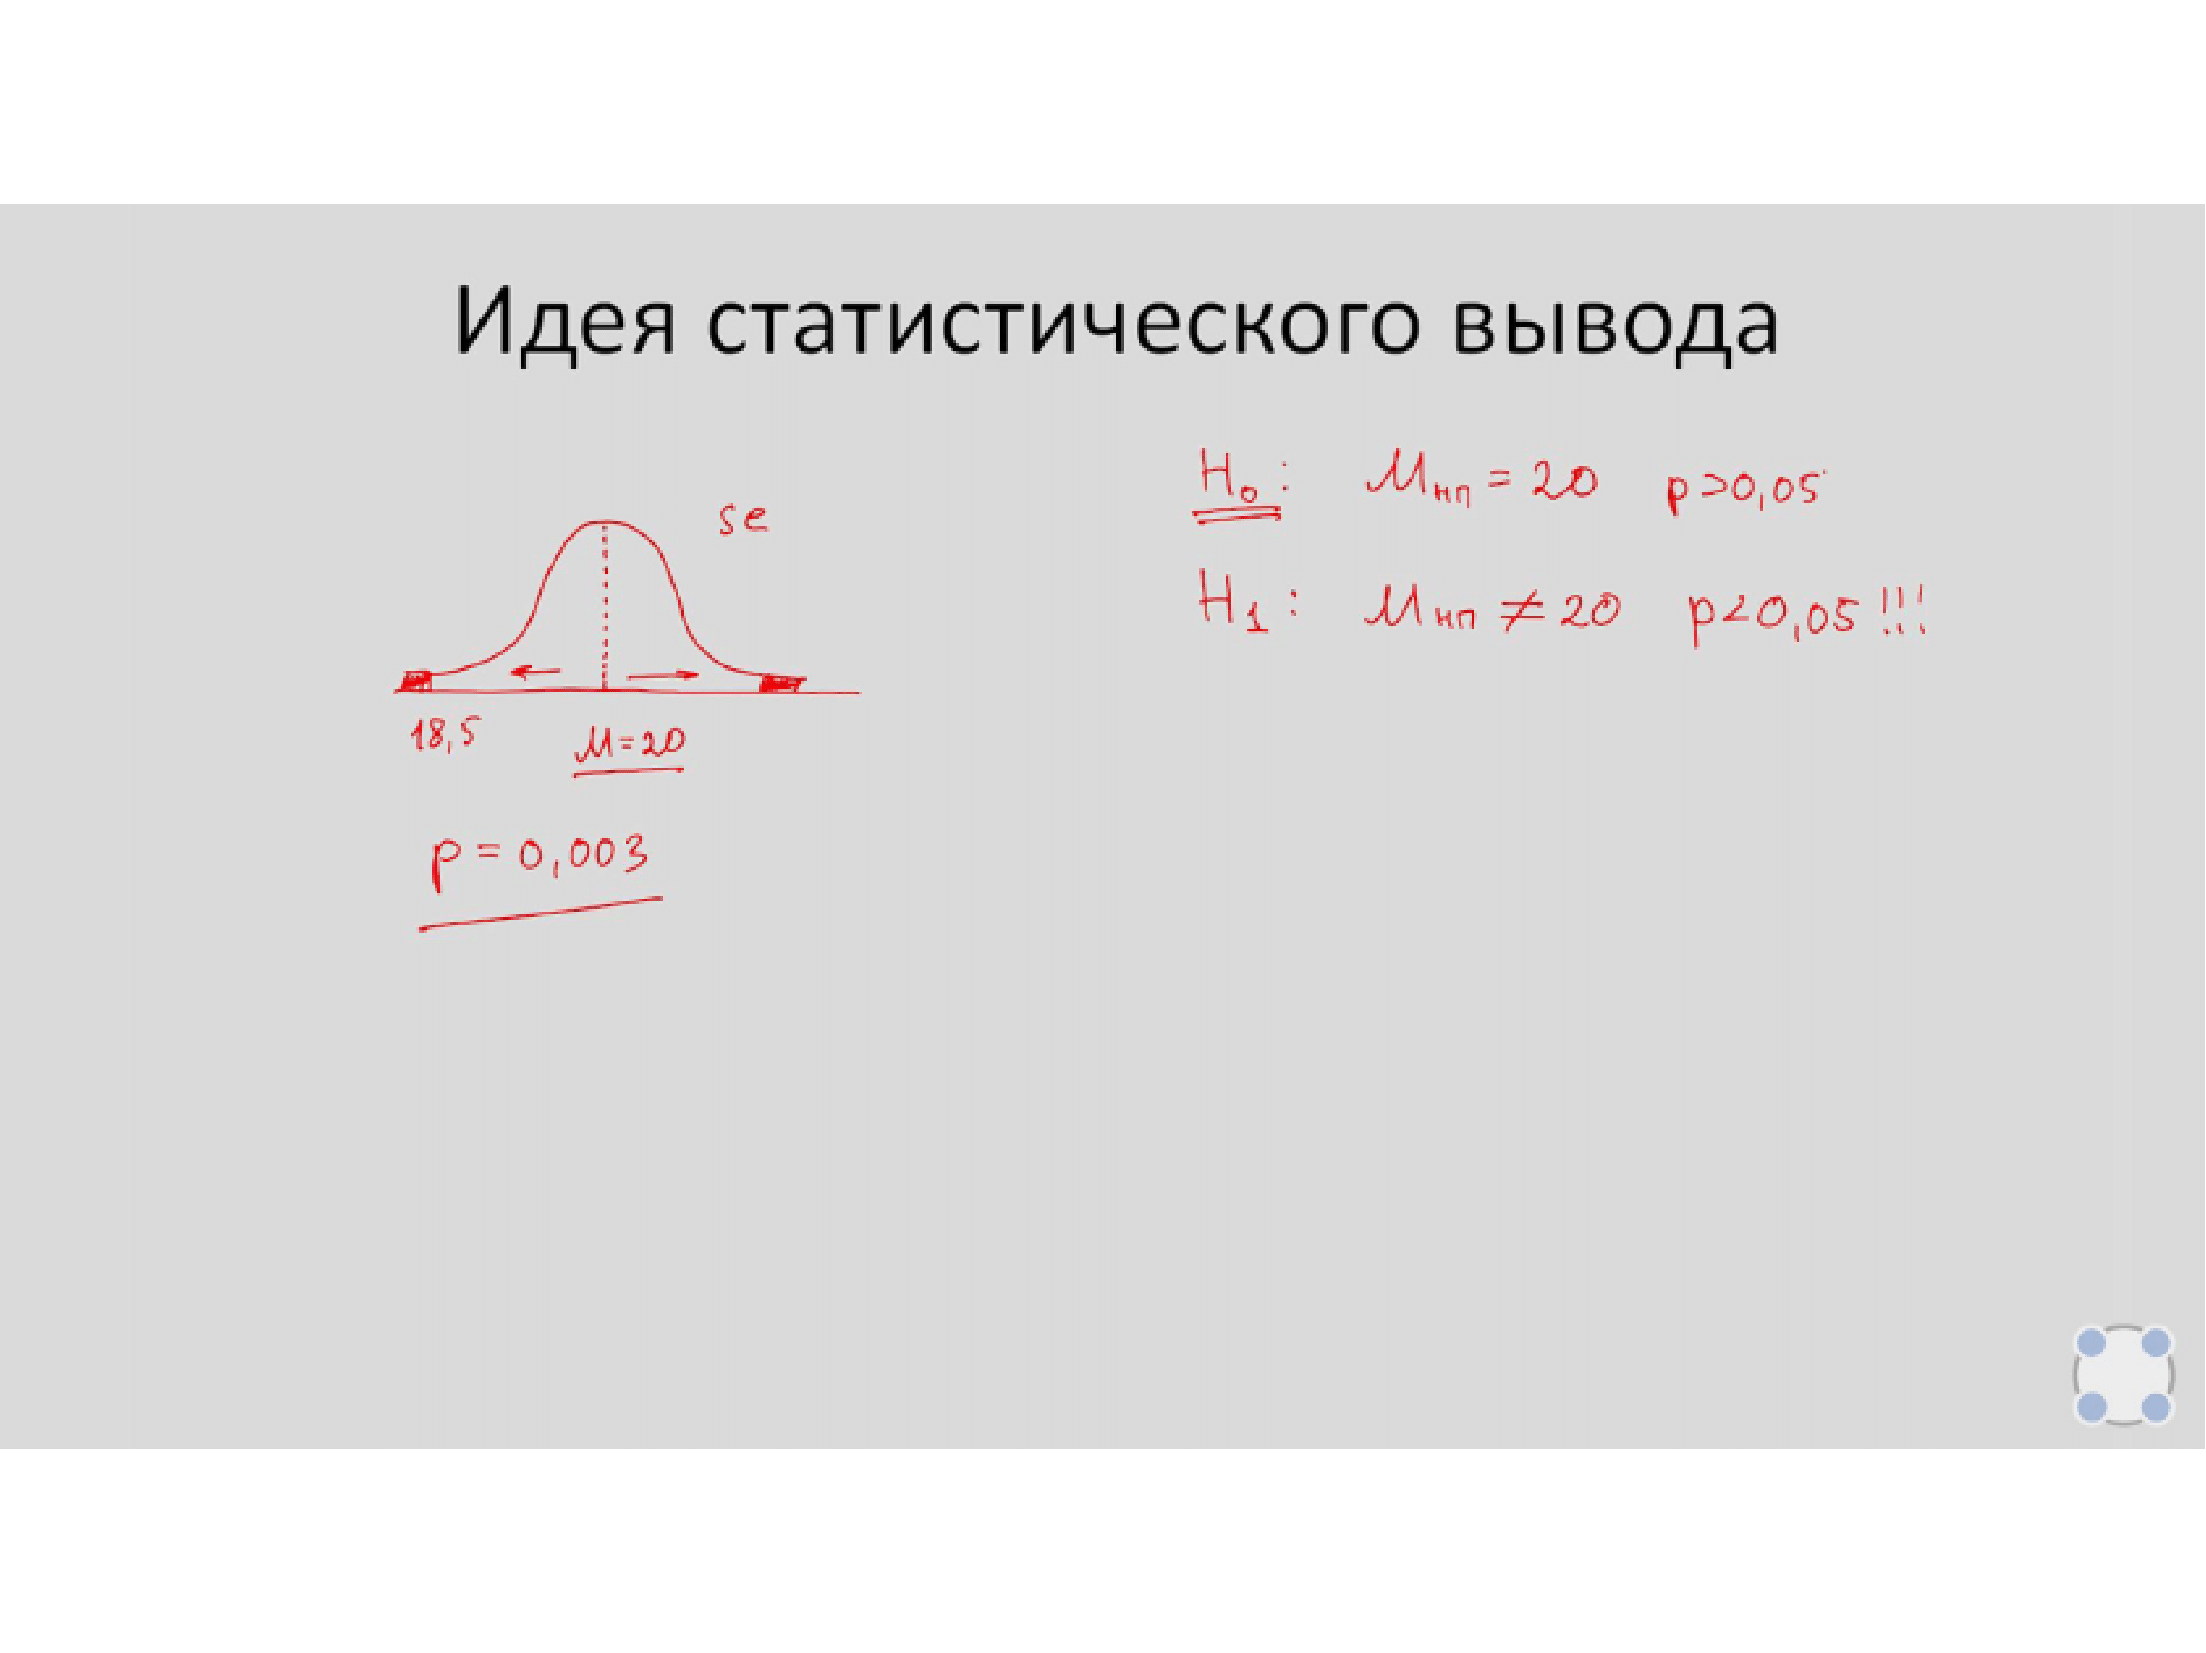 Идея статистического вывода
se
18,5
M=20
p = 0,003
H₀: Mнп = 20 p>0,05
H₁: Mнп ≠ 20 p<0,05!!!